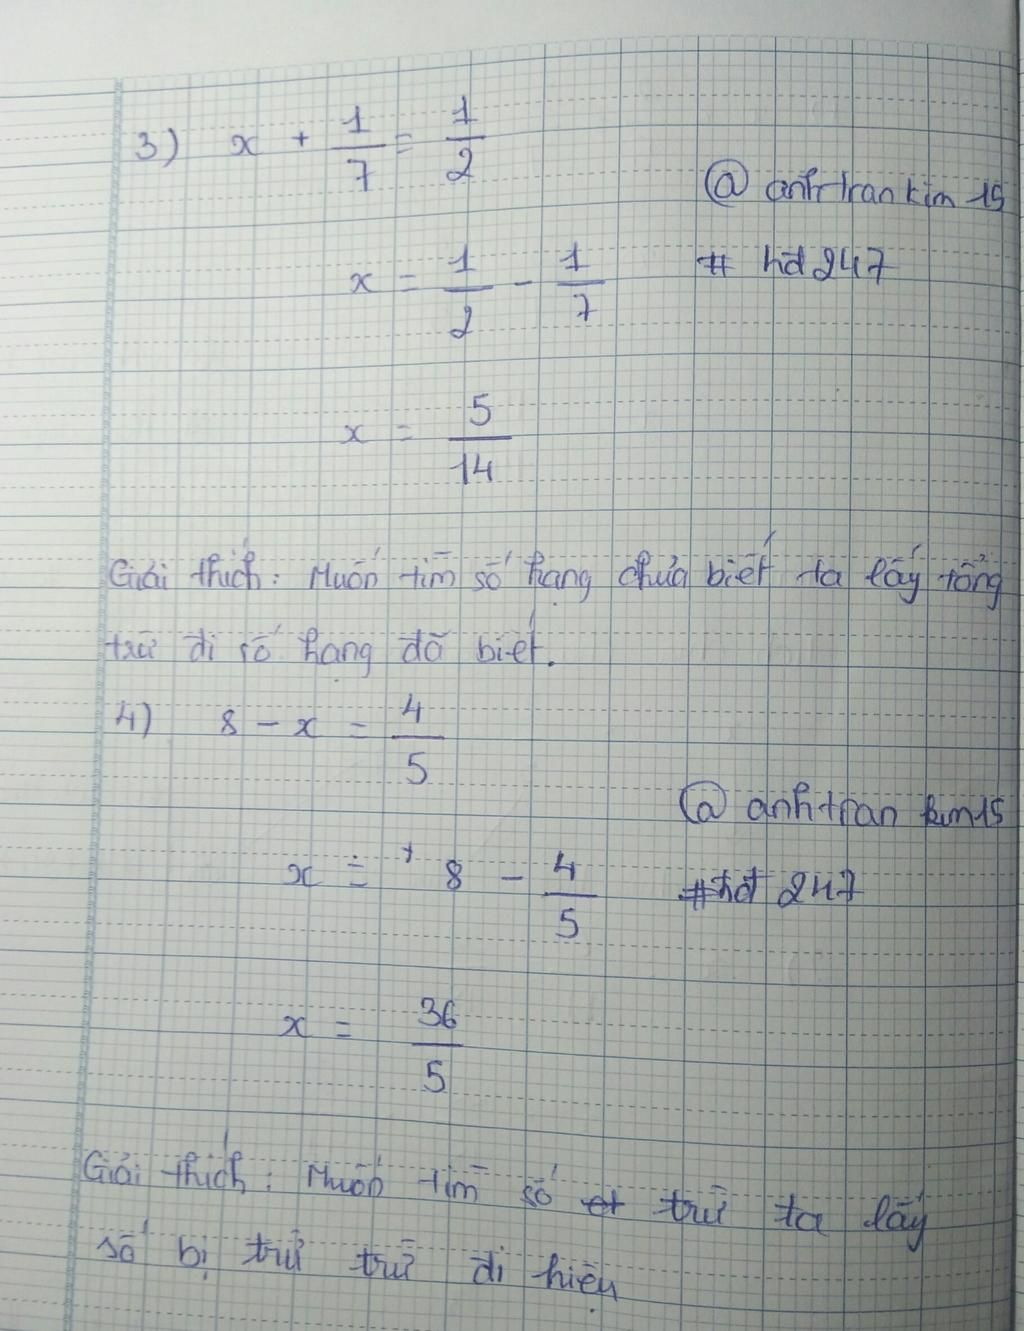 3) x + 1/7 = 1/2
@ anhtrankim15
x = 1/2 - 1/7
# hd247
x = 5/14
Giải thích: Muốn tìm số hạng chưa biết ta lấy tổng
trừ đi số hạng đã biết.
4) 8 - x = 4/5
@ anhtrankim15
x = 8 - 4/5
#hd247
x = 36/5
Giải thích: Muốn tìm số trừ ta lấy
số bị trừ trừ đi hiệu